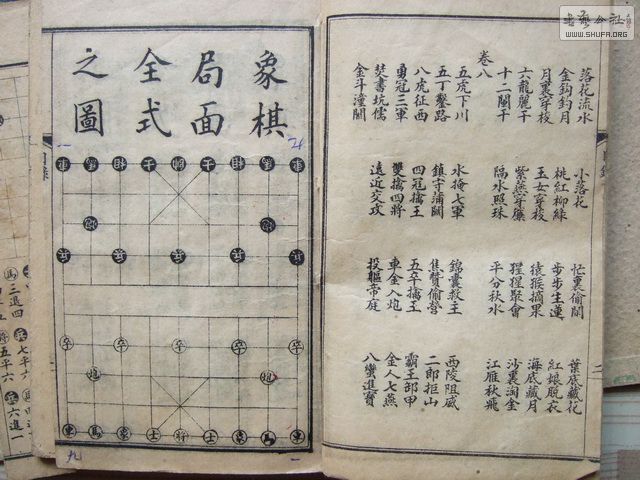 落花流水 小落花 忙裏偷閒 葉底藏花
金鈎釣月 桃紅柳綠 步步生蓮 紅娘脫衣
月裏穿梭 玉女穿梭 猿猴摘果 海底藏月
六龍麗干 紫燕穿簾 猩猩聚會 沙裏淘金
十二闌干 隔水照珠 平分秋水 江雁秋飛
卷八
五虎下川 水掩七軍 錦囊殺主 西陵阻威
五丁鑿路 鎮守蒲關 焦贊偷營 二郎拒山
八虎征西 四冠擒王 五卒擒王 霸王部甲
勇冠三軍 雙擒四將 車金入炮 金人七燕
焚書坑儒 遠近交攻 投軀帝庭 八蠻進寶
金斗潼關
二
象棋
局面
全式
之圖
一 九
卒 卒 卒 卒 卒
炮 炮
車 馬 象 士 將 士 象 馬 車
九 一
目錄
兵七平六
兵六進一
馬三退四
將五平六
WWW.SHUFA.ORG